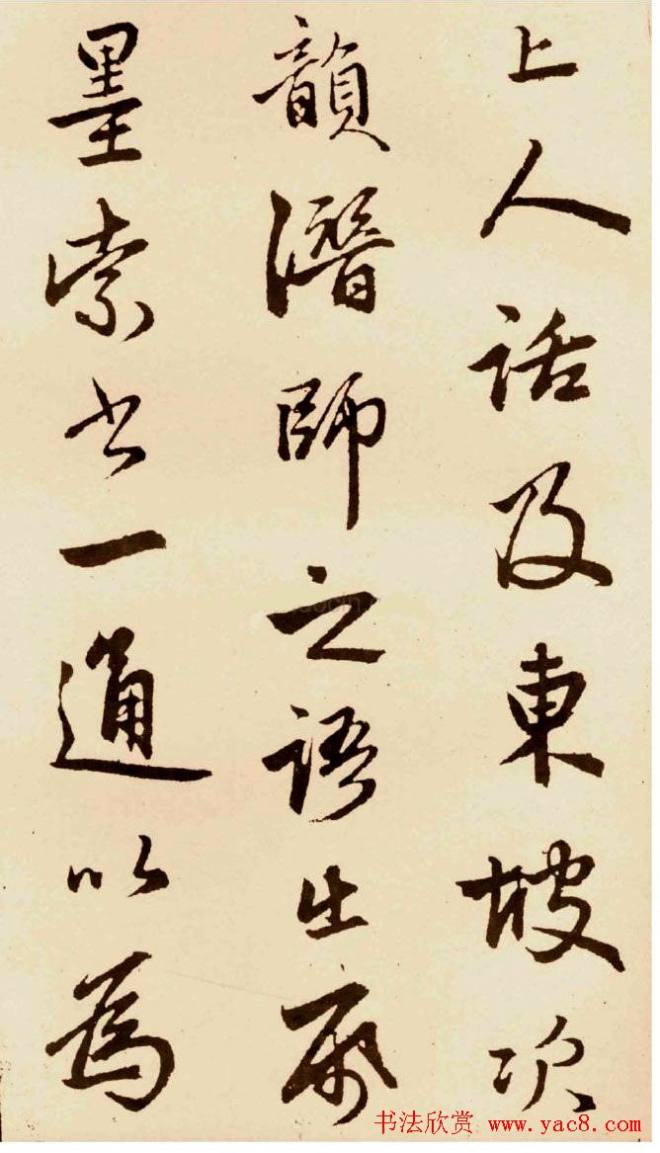 上人話及東坡次
韻潛師之語出紙
墨索書一通以為
书法欣赏 www.yac8.com